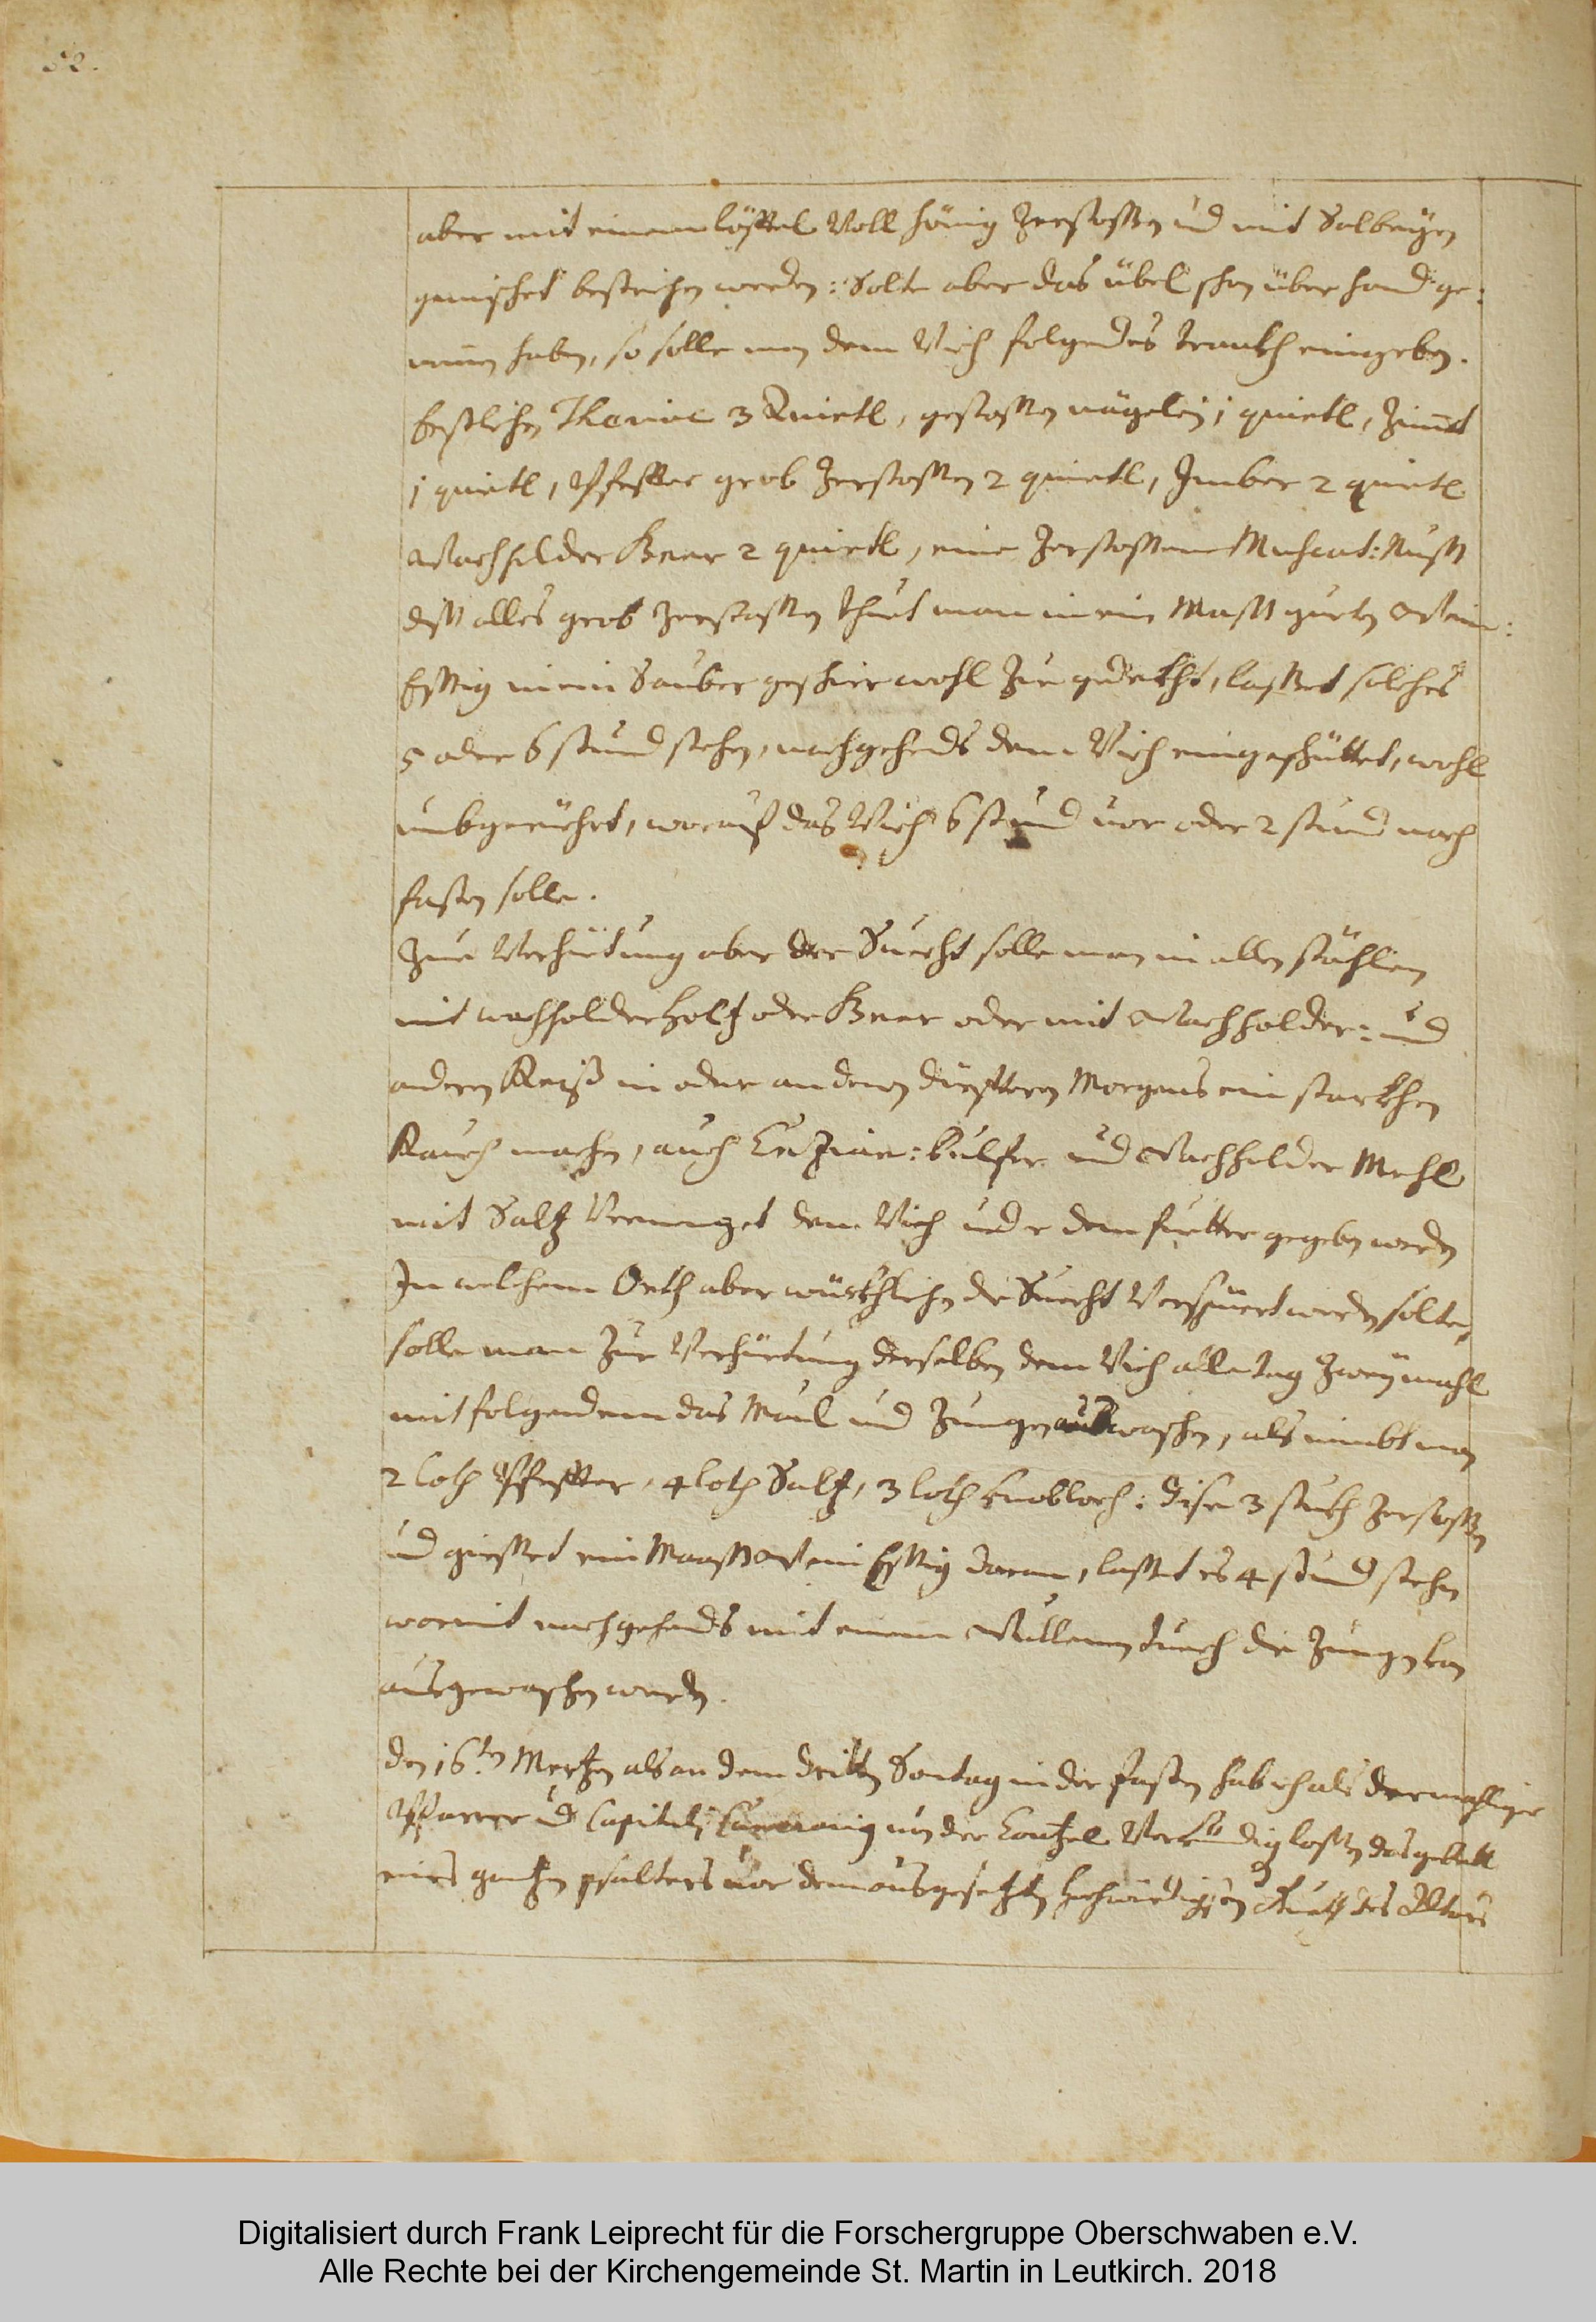 52.
aber mit einem löffel Voll hönig Zerstossen und mit Salbeyen
gemischet bestrichen werden: Solte aber das übel schon über hand ge:
numen haben, so solle man dem Vich folgendes tranckh eingeben.
Erstlichen Theriac 3 Quintl, gestossen nägelein 1 quintl, Zimet
1 quintl, Pfeffer grob Zerstossen 2 quintl, Imber 2 quintl
Wachholder Beer 2 quintl, eine Zerstossene Muscat: Nuss
diss alles grob Zerstossen thuet man in ein Mass gueten Wein:
Essig in ein Sauber geschirr wohl Zue gedeckht, lasset solches
5 oder 6 stund stehen, nachgehends dem Vich eingeschüttet, wohl
umbgerührt, worauf das Vich 6 stund vor oder 2 stund nach
fasten solle.
Zur Verhütung aber der Sucht solle man in allen stählen
mit wachholder holtz oder Beer oder mit Wachholder: und
anderen Reiß in oder an denen Morgens ein starckhen
Rauch machen, auch Entzian: bulfer und Wachholder Mehl
mit Saltz Vermenget dem Vich under dem fuetter gegeben werden
In welchem Orth aber würckhlichen die Sucht Verspührt werden solte,
solle man Zur Verhüetung derselben dem Vich alle tag Zweymahl
mit folgendem das Maul und Zungen auswaschen, als nimbt man
2 loth Pfeffer, 4 loth Saltz, 3 loth knobloch: dise 3 stuckh Zerstossen
und giesset ein Maass Wein Essig daran, lasset es 4 stund stehen
wormit nachgehends mit einem Wullenen tuech die Zungen kan
ausgewaschen werden.
den 16ten Mertzen als an dem dritten Sontag in der fasten hab ich als dermahliger
Pfarrer und Capituli Camerarius von der Cantzel Verkündigen lassen das gebett
eines gantzen psalters vor dem ausgesetzten hochwürdigsten Guett des Altars
Digitalisiert durch Frank Leiprecht für die Forschergruppe Oberschwaben e.V.
Alle Rechte bei der Kirchengemeinde St. Martin in Leutkirch. 2018